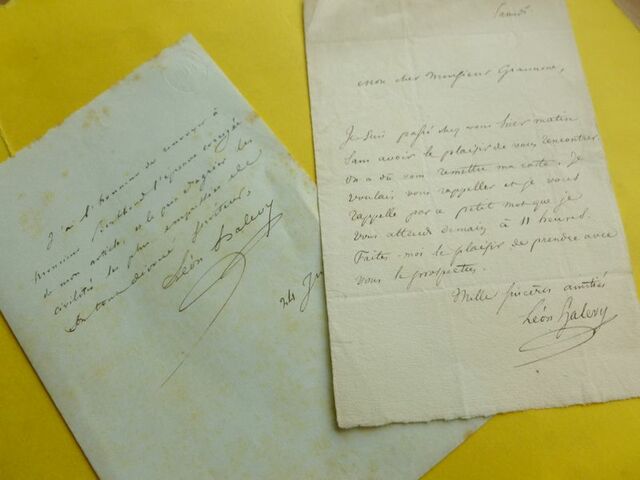 J'ai l'honneur de renvoyer à
Monsieur l'épreuve corrigée
de mon article, et le prie d'agréer les
civilités les plus empressées de
son tout dévoué serviteur,
Léon Halevy
24
Samedi
Mon cher Monsieur
Je suis passé chez vous hier matin
sans avoir le plaisir de vous rencontrer.
On a dû vous remettre ma carte. Je
voulais vous rappeller et je vous
rappelle par ce petit mot que je
vous attends demain à 11 heures.
Faites-moi le plaisir de prendre avec
vous le prospectus.
Mille sincères amitiés
Léon Halevy